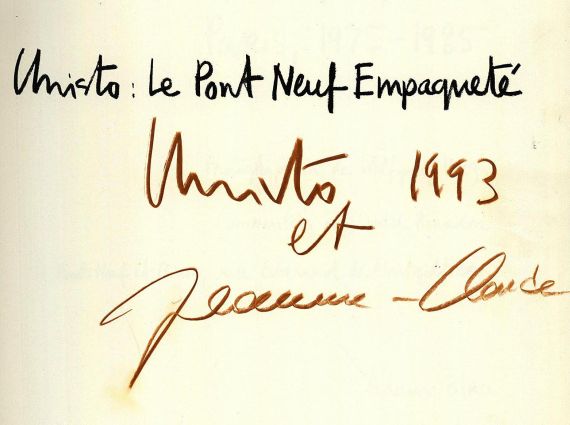 Christo: Le Pont Neuf Empaqueté
Christo 1993
et
Jeanne-Claude